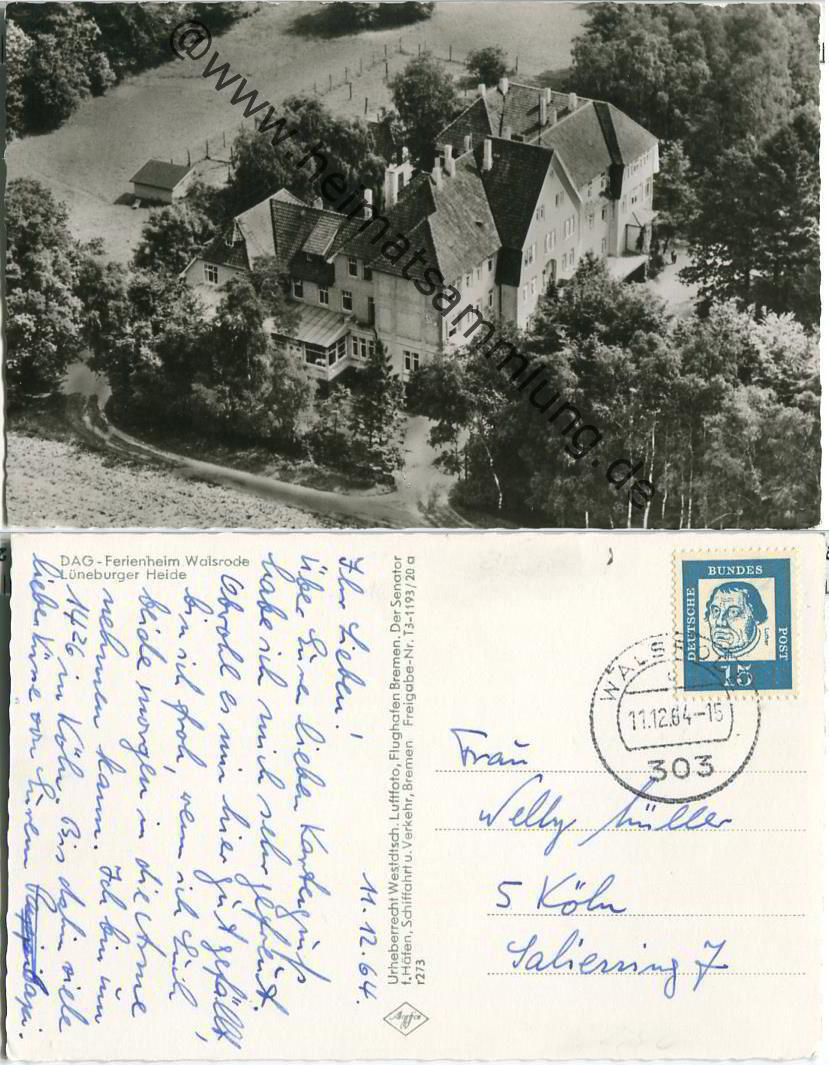 @www.heimatsammlung.de
DAG - Ferienheim Walsrode
Lüneburger Heide
11.12.64.
Ihr Lieben!
Über Euren lieben Kartengruß
habe ich mich sehr gefreut.
Obwohl es mir hier gut gefällt,
bin ich froh, wenn ich Euch
beide morgen in die Arme
nehmen kann. Ich bin um
14 26 in Köln. Bis dahin viele
liebe Küsse von Eurem Papi.
Urheberrecht Westdtsch. Luftfoto, Flughafen Bremen. Der Senator
f. Häfen, Schiffahrt u. Verkehr, Bremen Freigabe-Nr. T3-1193/20 a
r273
Agfa
DEUTSCHE
BUNDES
POST
Luther
15
WALSRODE
11.12.64-15
303
Frau
Welly Müller
5 Köln
Salierring 7